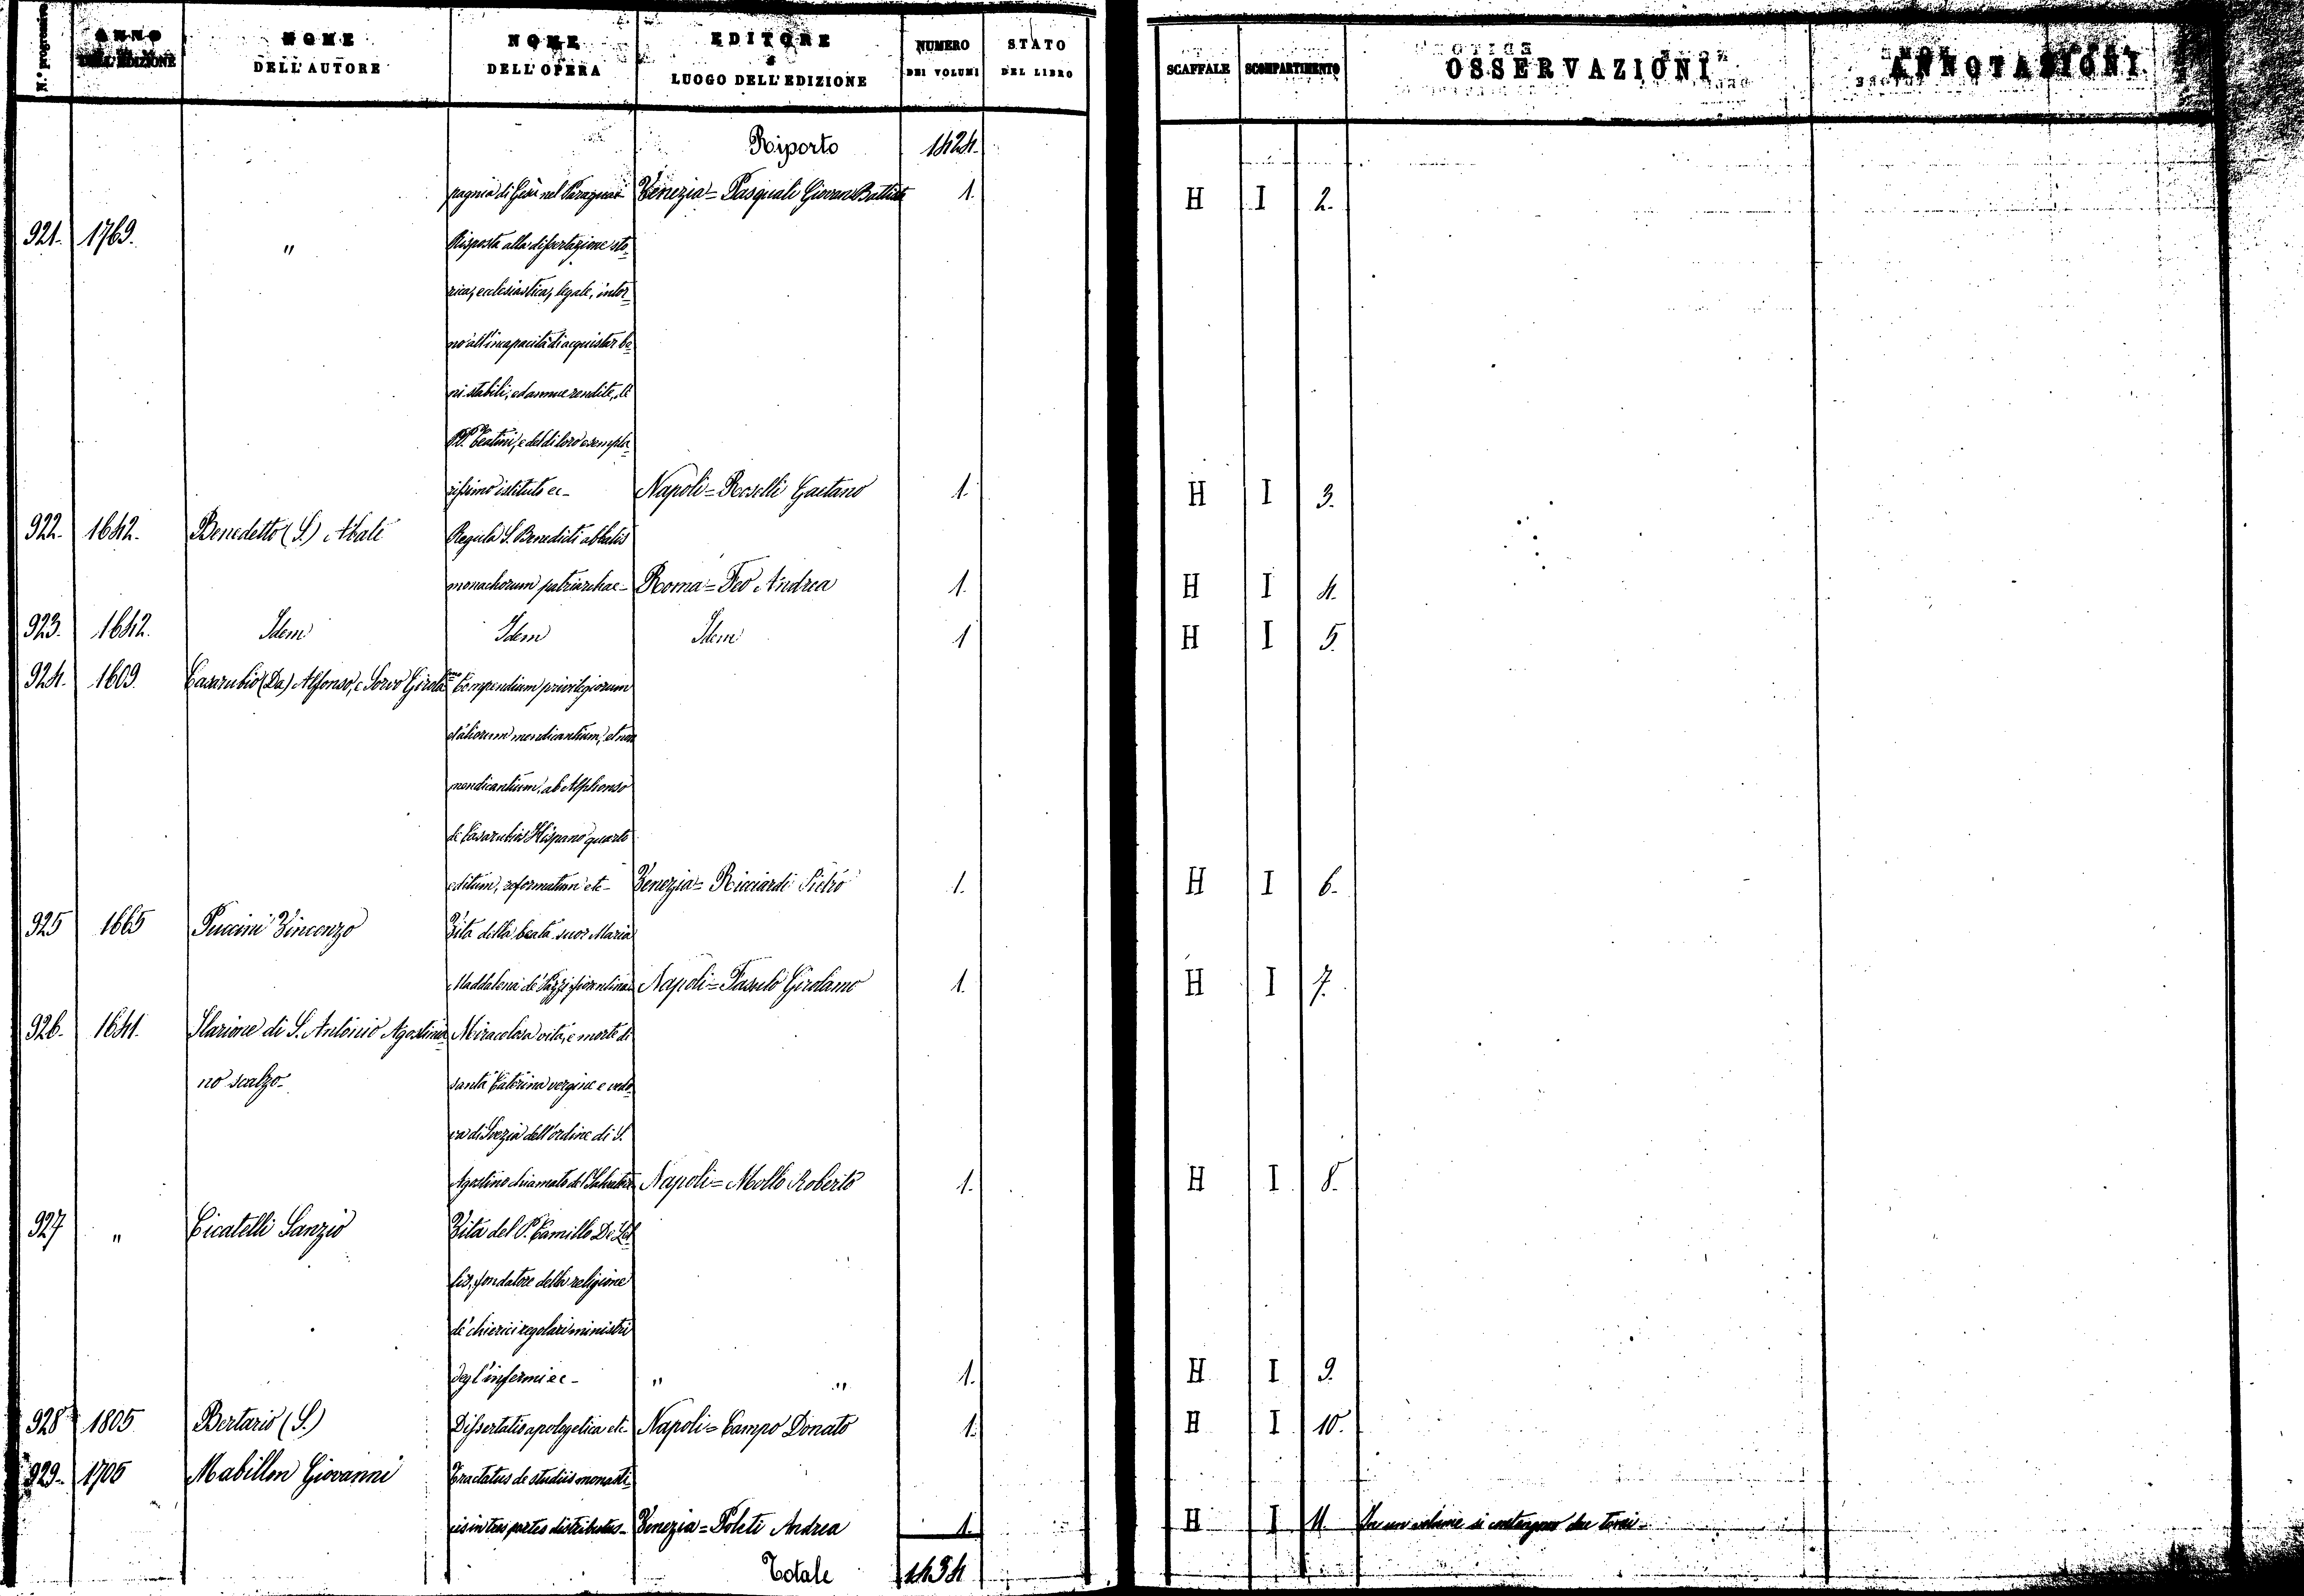 N.° progressivo ANNO DELL'EDIZIONE NOME DELL'AUTORE NOME DELL'OPERA EDITORE e LUOGO DELL'EDIZIONE NUMERO DEI VOLUMI STATO DEL LIBRO SCAFFALE SCOMPARTIMENTO OSSERVAZIONI ANNOTAZIONI
Riporto 1424.
pagnia di Gesù nel Paraguai Venezia = Pasquali Giovan Battista 1. H I 2.
921. 1769. " Risposta alla dissertazione sto-
rica, ecclesiastica, legale, intor-
no all'incapacità di acquistar be-
ni stabili, ed annue rendite, de
PP. Teatini, e del di loro esempla-
rissimo istituto ec- Napoli = Roselli Gaetano 1. H I 3.
922. 1642. Benedetto (S.) Abate Regula S. Benedicti abbatis
monachorum patriarchae- Roma = Feo Andrea 1. H I 4.
923. 1642. Idem Idem Idem 1 H I 5.
924. 1609. Casarubio (Da) Alfonso, e Sorvo Girolamo Compendium privilegiorum
et aliorum mendicantium, et non
mendicantium, ab Alphonso
de Casarubios Hispano quarto
editum, reformatum etc- Venezia = Ricciardi Pietro 1. H I 6.
925 1665 Puccini Vincenzo Vita della beata suor Maria
Maddalena de' Pazzi fiorentina Napoli = Fasulo Girolamo 1. H I 7.
926. 1641. Ilarione di S. Antonio Agostinia- Miracolosa vita, e morte di
no scalzo- santa Caterina vergine e vedo-
va di Svezia dell'ordine di S.
Agostino chiamato del Salvatore Napoli = Mollo Roberto 1. H I 8.
927 " Cicatelli Sanzio Vita del P. Camillo De Lel-
lis, fondatore della religione
de' chierici regolari ministri
degl'infermi ec- " " 1. H I 9.
928 1805 Bertario (S.) Dissertatio apologetica etc- Napoli = Campo Donato 1. H I 10.
929. 1705 Mabillon Giovanni Tractatus de studiis monasti-
cis in tres partes distributus- Venezia = Poleti Andrea 1. H I 11. In un volume si contengono due tomi-
Totale 1434